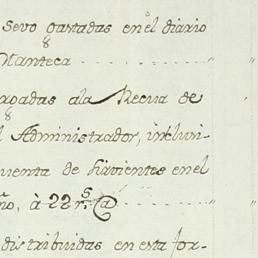 Sevo gastadas en el diario
Manteca
rogadas ala Recua de
l Administrador, inclusi-
uenta de sirvientes en el
ño, à 22 r.s C.a
distribuidas en esta for-